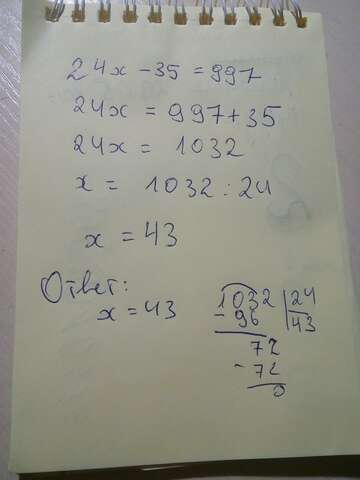 24x - 35 = 997
24x = 997 + 35
24x = 1032
x = 1032 : 24
x = 43
Ответ:
x = 43
1032 | 24
- 96 | 43
72
- 72
0